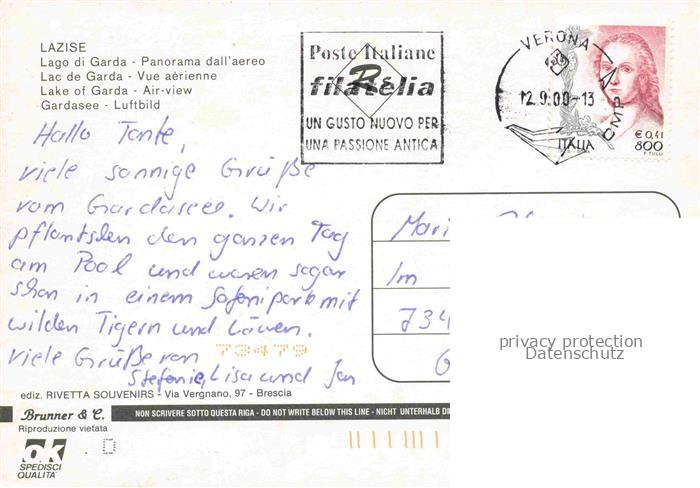 LAZISE
Lago di Garda - Panorama dall'aereo
Lac de Garda - Vue aèrienne
Lake of Garda - Air-view
Gardasee - Luftbild
Poste Italiane
filatelia
UN GUSTO NUOVO PER
UNA PASSIONE ANTICA
VERONA CMP
12.9.00-13
€ 0,41
ITALIA 800
F. TULLI
Hallo Tante,
viele sonnige Grüße
vom Gardasee. Wir
pflantsden den ganzen Tag
am Pool und waren sogar
schon in einem Safaripark mit
wilden Tigern und Löwen.
Viele Grüße von
Stefanie, Lisa und Jan
73479
Mari
Im
734
ediz. RIVETTA SOUVENIRS - Via Vergnano, 97 - Brescia
Brunner & C.
NON SCRIVERE SOTTO QUESTA RIGA - DO NOT WRITE BELOW THIS LINE - NICHT UNTERHALB DI
Riproduzione vietata
ok
SPEDISCI
QUALITA'
D
privacy protection
Datenschutz